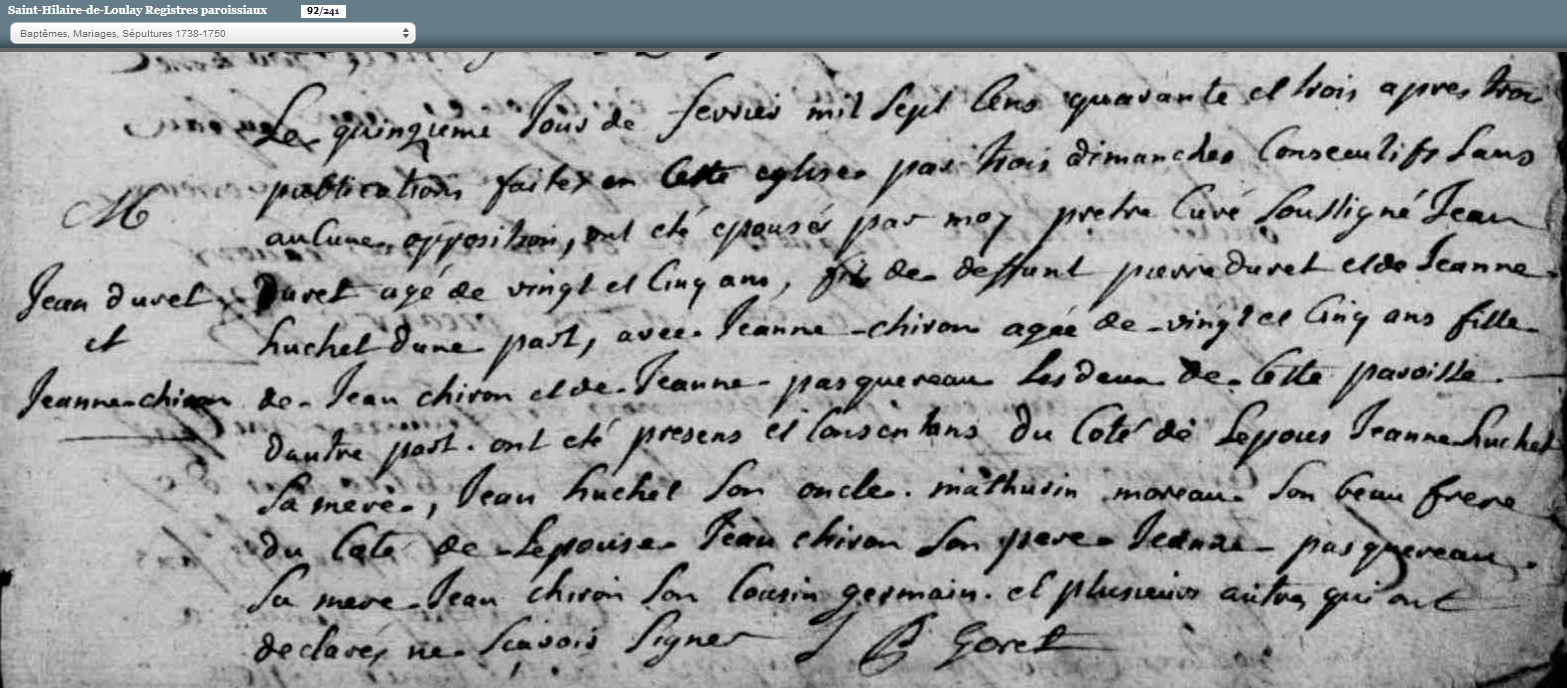 Saint-Hilaire-de-Loulay Registres paroissiaux 92/241
Baptêmes, Mariages, Sépultures 1738-1750
Le quinzieme Jour de fevrier mil Sept Cens quarante et trois apres troi
publications faites en Cette eglise par trois dimanches Consecutifs Sans
M
auCune opposition, ont eté epousés par moy pretre Curé Soussigné Jean
Jean duret
Duret agé de vingt et Cinq ans, fils de deffunt pierre duret et de Jeanne
et
huchet dune part, avec Jeanne chiron agée de vingt et Cinq ans fille
Jeanne chiron
de Jean chiron et de Jeanne pasquereau Les deux de Cette paroisse
dautre part. ont eté presens et Consentans du Coté de Lepoux Jeanne huchet
Sa mere, Jean huchet Son oncle. mathurin moreau Son beau frere
du Coté de Lepouse Jean chiron Son pere Jeanne pasquereau
Sa mere Jean chiron Son Cousin germain. et plusieurs autres qui ont
declarés ne Scavoir Signer J B Goret